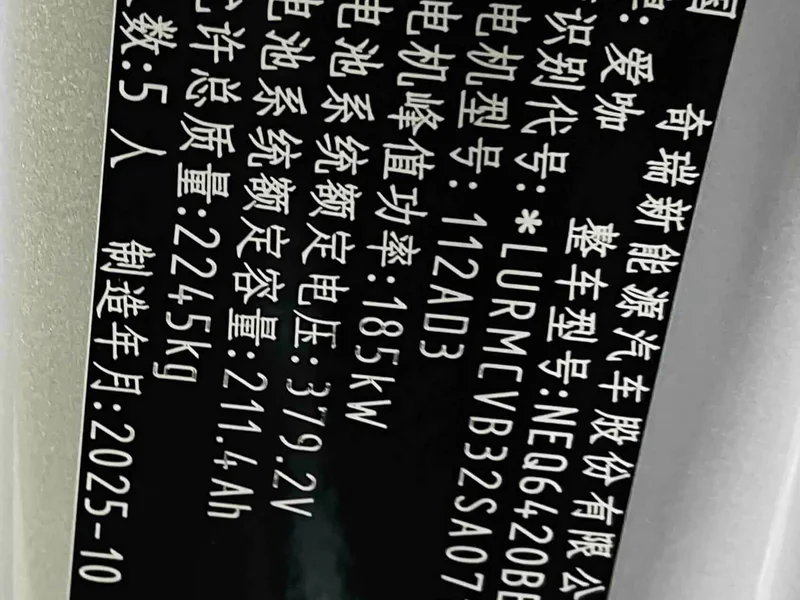 国
奇瑞新能源汽车股份有限公
爱咖 整车型号:NEQ6420BE
识别代号:*LURMCVB32SA07
电机型号:112AD3
电机峰值功率:185kW
电池系统额定电压:379.2V
电池系统额定容量:211.4Ah
许总质量:2245kg
数:5 人 制造年月:2025-10